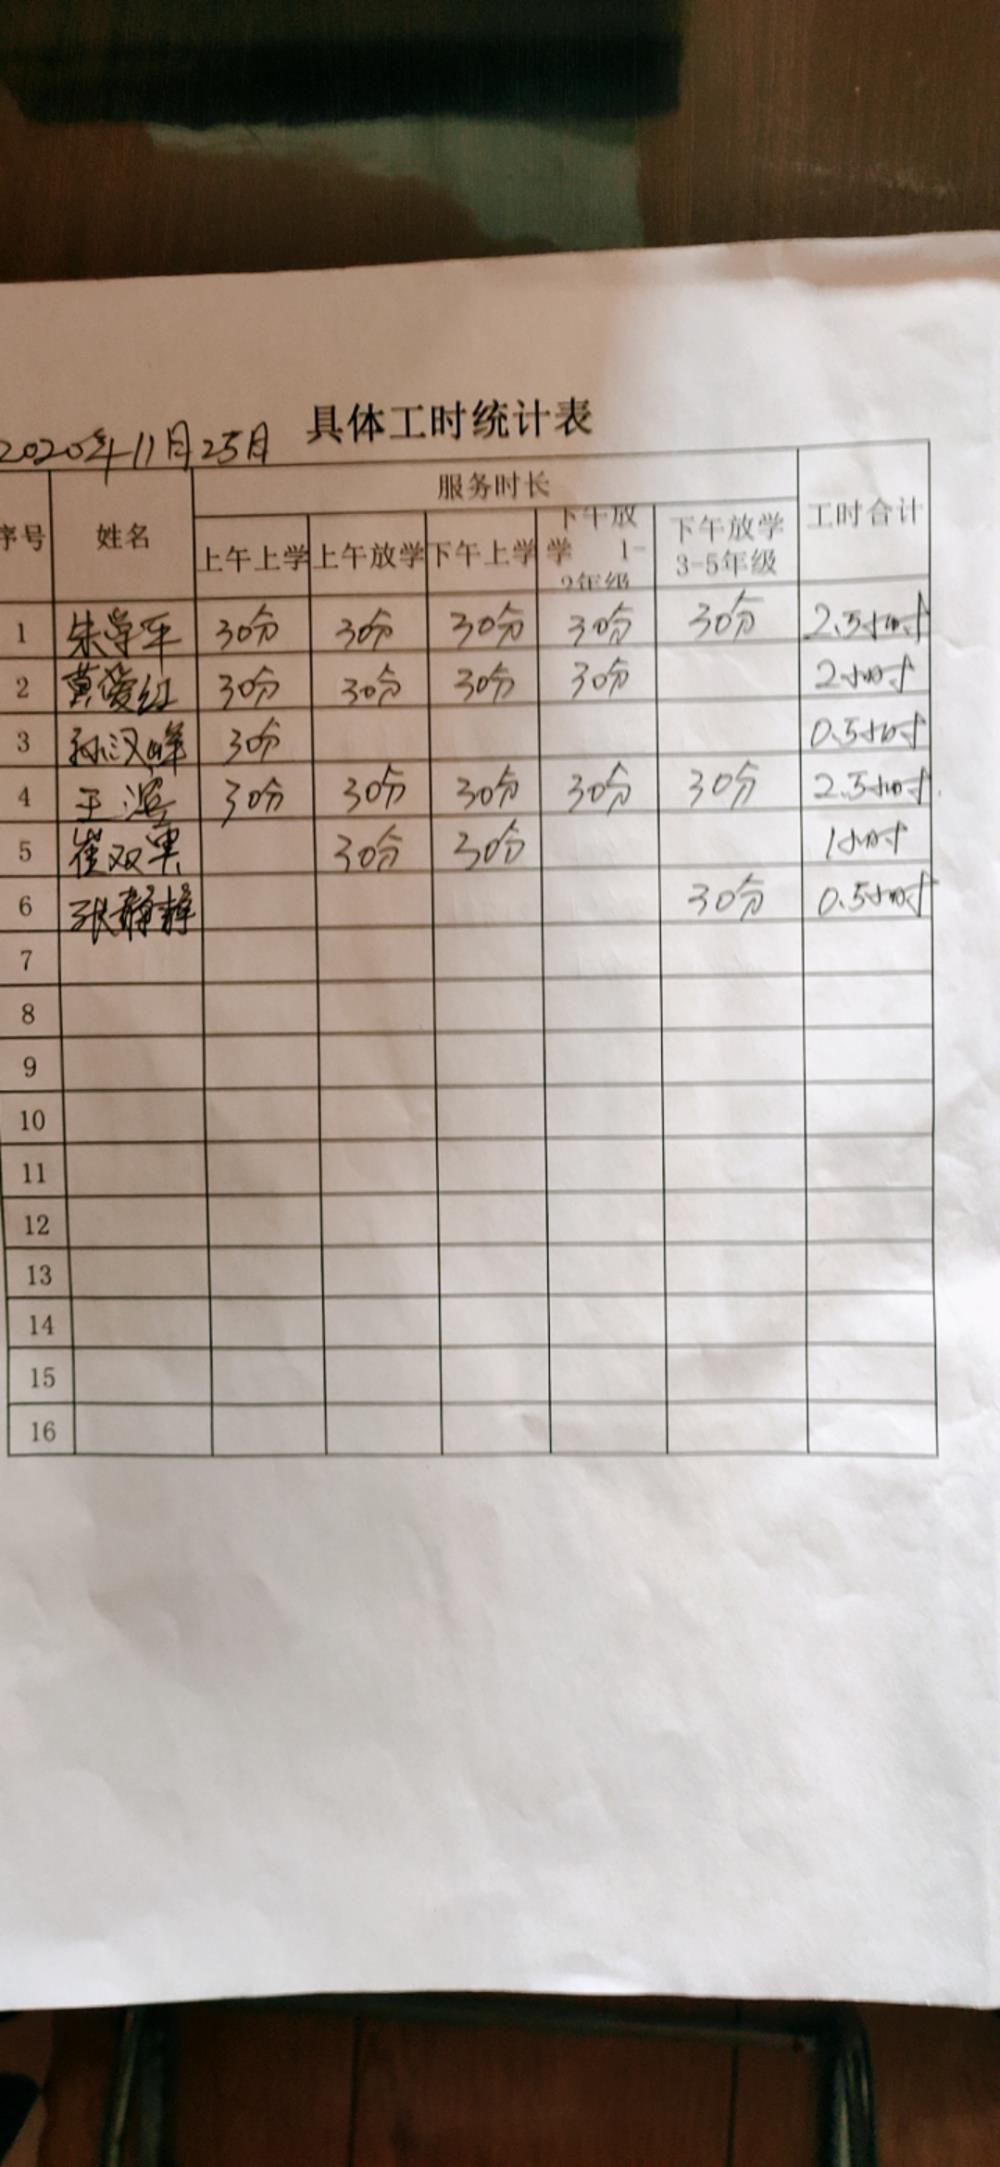 具体工时统计表
2020年11月25月
序号 姓名 服务时长 工时合计
上午上学 上午放学 下午上学 下午放学 1-2年级 下午放学3-5年级
1 朱学平 30分 30分 30分 30分 30分 2.5小时
2 黄爱红 30分 30分 30分 30分 2小时
3 孙汉峰 30分 0.5小时
4 王 30分 30分 30分 30分 30分 2.5小时
5 崔双果 30分 30分 1小时
6 张静静 30分 0.5小时
7
8
9
10
11
12
13
14
15
16